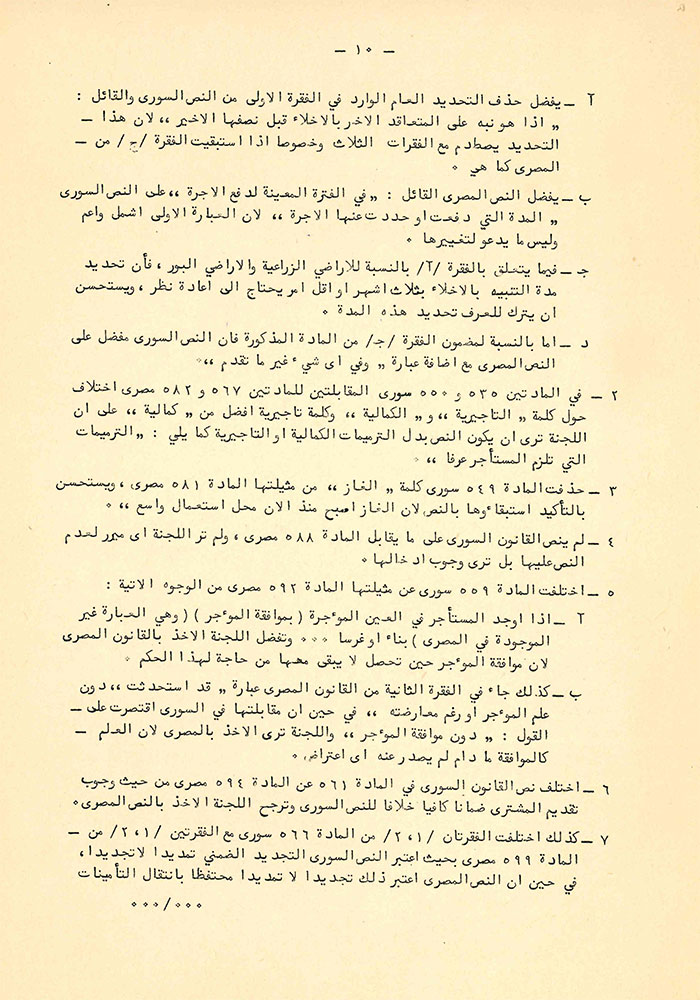 — ١٠ —
آ ــ يفضل حذف التحديد العام الوارد في الفقرة الاولى من النص السورى والقائل :
„ اذا هو نبه على المتعاقد الاخر بالاخلاء قبل نصفها الاخير ،، لان هذا ــ
التحديد يصطدم مع الفقرات الثلاث وخصوصا اذا استبقيت الفقرة /ج/ من ــ
المصرى كما هي ٠
ب ــ يفضل النص المصرى القائل : „ في الفترة المعينة لدفع الاجرة ،، على النص السورى
„ المدة التي دفعت او حددت عنها الاجرة ،، لان العبارة الاولى اشمل واعم
وليس ما يدعو لتغييرها ٠
جـ ــ فيما يتعلق بالفقرة /آ/ بالنسبة للاراضي الزراعية والاراضي البور ، فأن تحديد
مدة التنبيه بالاخلاء بثلاث اشهر او اقل امر يحتاج الى اعادة نظر ، ويستحسن
ان يترك للعرف تحديد هذه المدة ٠
د ــ اما بالنسبة لمضمون الفقرة /جـ/ من المادة المذكورة فان النص السورى مفضل على
النص المصرى مع اضافة عبارة „ وفي اى شيء غير ما تقدم ،،٠
٢ ــ في المادتين ٥٣٥ و ٥٥٠ سورى المقابلتين للمادتين ٥٦٧ و ٥٨٢ مصرى اختلاف
حول كلمة „ التاجيرية ،، و „ الكمالية ،، وكلمة تاجيرية افضل من „ كمالية ،، على ان
اللجنة ترى ان يكون النص بدل الترميمات الكمالية او التاجيرية كما يلي : „ الترميمات
التي تلزم المستأجر عرفا ،، ٠
٣ ــ حذفت المادة ٥٤٩ سورى كلمة „ الغاز ،، من مثيلتها المادة ٥٨١ مصرى ، ويستحسن
بالتأكيد استبقاءوها بالنص لان الغاز اصبح منذ الان محل استعمال واسع ،، ٠
٤ ــ لم ينص القانون السورى على ما يقابل المادة ٥٨٨ مصرى ، ولم تر اللجنة اى مبرر لعدم
النص عليها بل ترى وجوب ادخالها ٠
٥ ــ اختلفت المادة ٥٥٩ سورى عن مثيلتها المادة ٥٩٢ مصرى من الوجوه الاتية :
آ ــ اذا اوجد المستأجر في العين الموءجرة ( بموافقة الموءجر ) ( وهي العبارة غير
الموجودة في المصرى ) بناء او غرسا ٠٠٠ وتفضل اللجنة الاخذ بالقانون المصرى
لان موافقة الموءجر حين تحصل لا يبقى معها من حاجة لهذا الحكم ٠
ب ــ كذلك جاء في الفقرة الثانية من القانون المصرى عبارة „ قد استحدثت ،، دون
علم الموءجر او رغم معارضته ،، في حين ان مقابلتها في السورى اقتصرت على ــ
القول : „ دون موافقة الموءجر ،، واللجنة ترى الاخذ بالمصرى لان العلم ــ
كالموافقة ما دام لم يصدر عنه اى اعتراض ٠
٦ ــ اختلف نص القانون السورى في المادة ٥٦١ عن المادة ٥٩٤ مصرى من حيث وجوب
تقديم المشترى ضمانا كافيا خلافا للنص السورى وترجح اللجنة الاخذ بالنص المصرى٠
٧ ــ كذلك اختلفت الفقرتان /١،٢/ من المادة ٥٦٦ سورى مع الفقرتين /١،٢/ من ــ
المادة ٥٩٩ مصرى بحيث اعتبر النص السورى التجديد الضمني تمديدا لاتجديدا ،
في حين ان النص المصرى اعتبر ذلك تجديدا لا تمديدا محتفظا بانتقال التأمينات
٠٠٠/٠٠٠